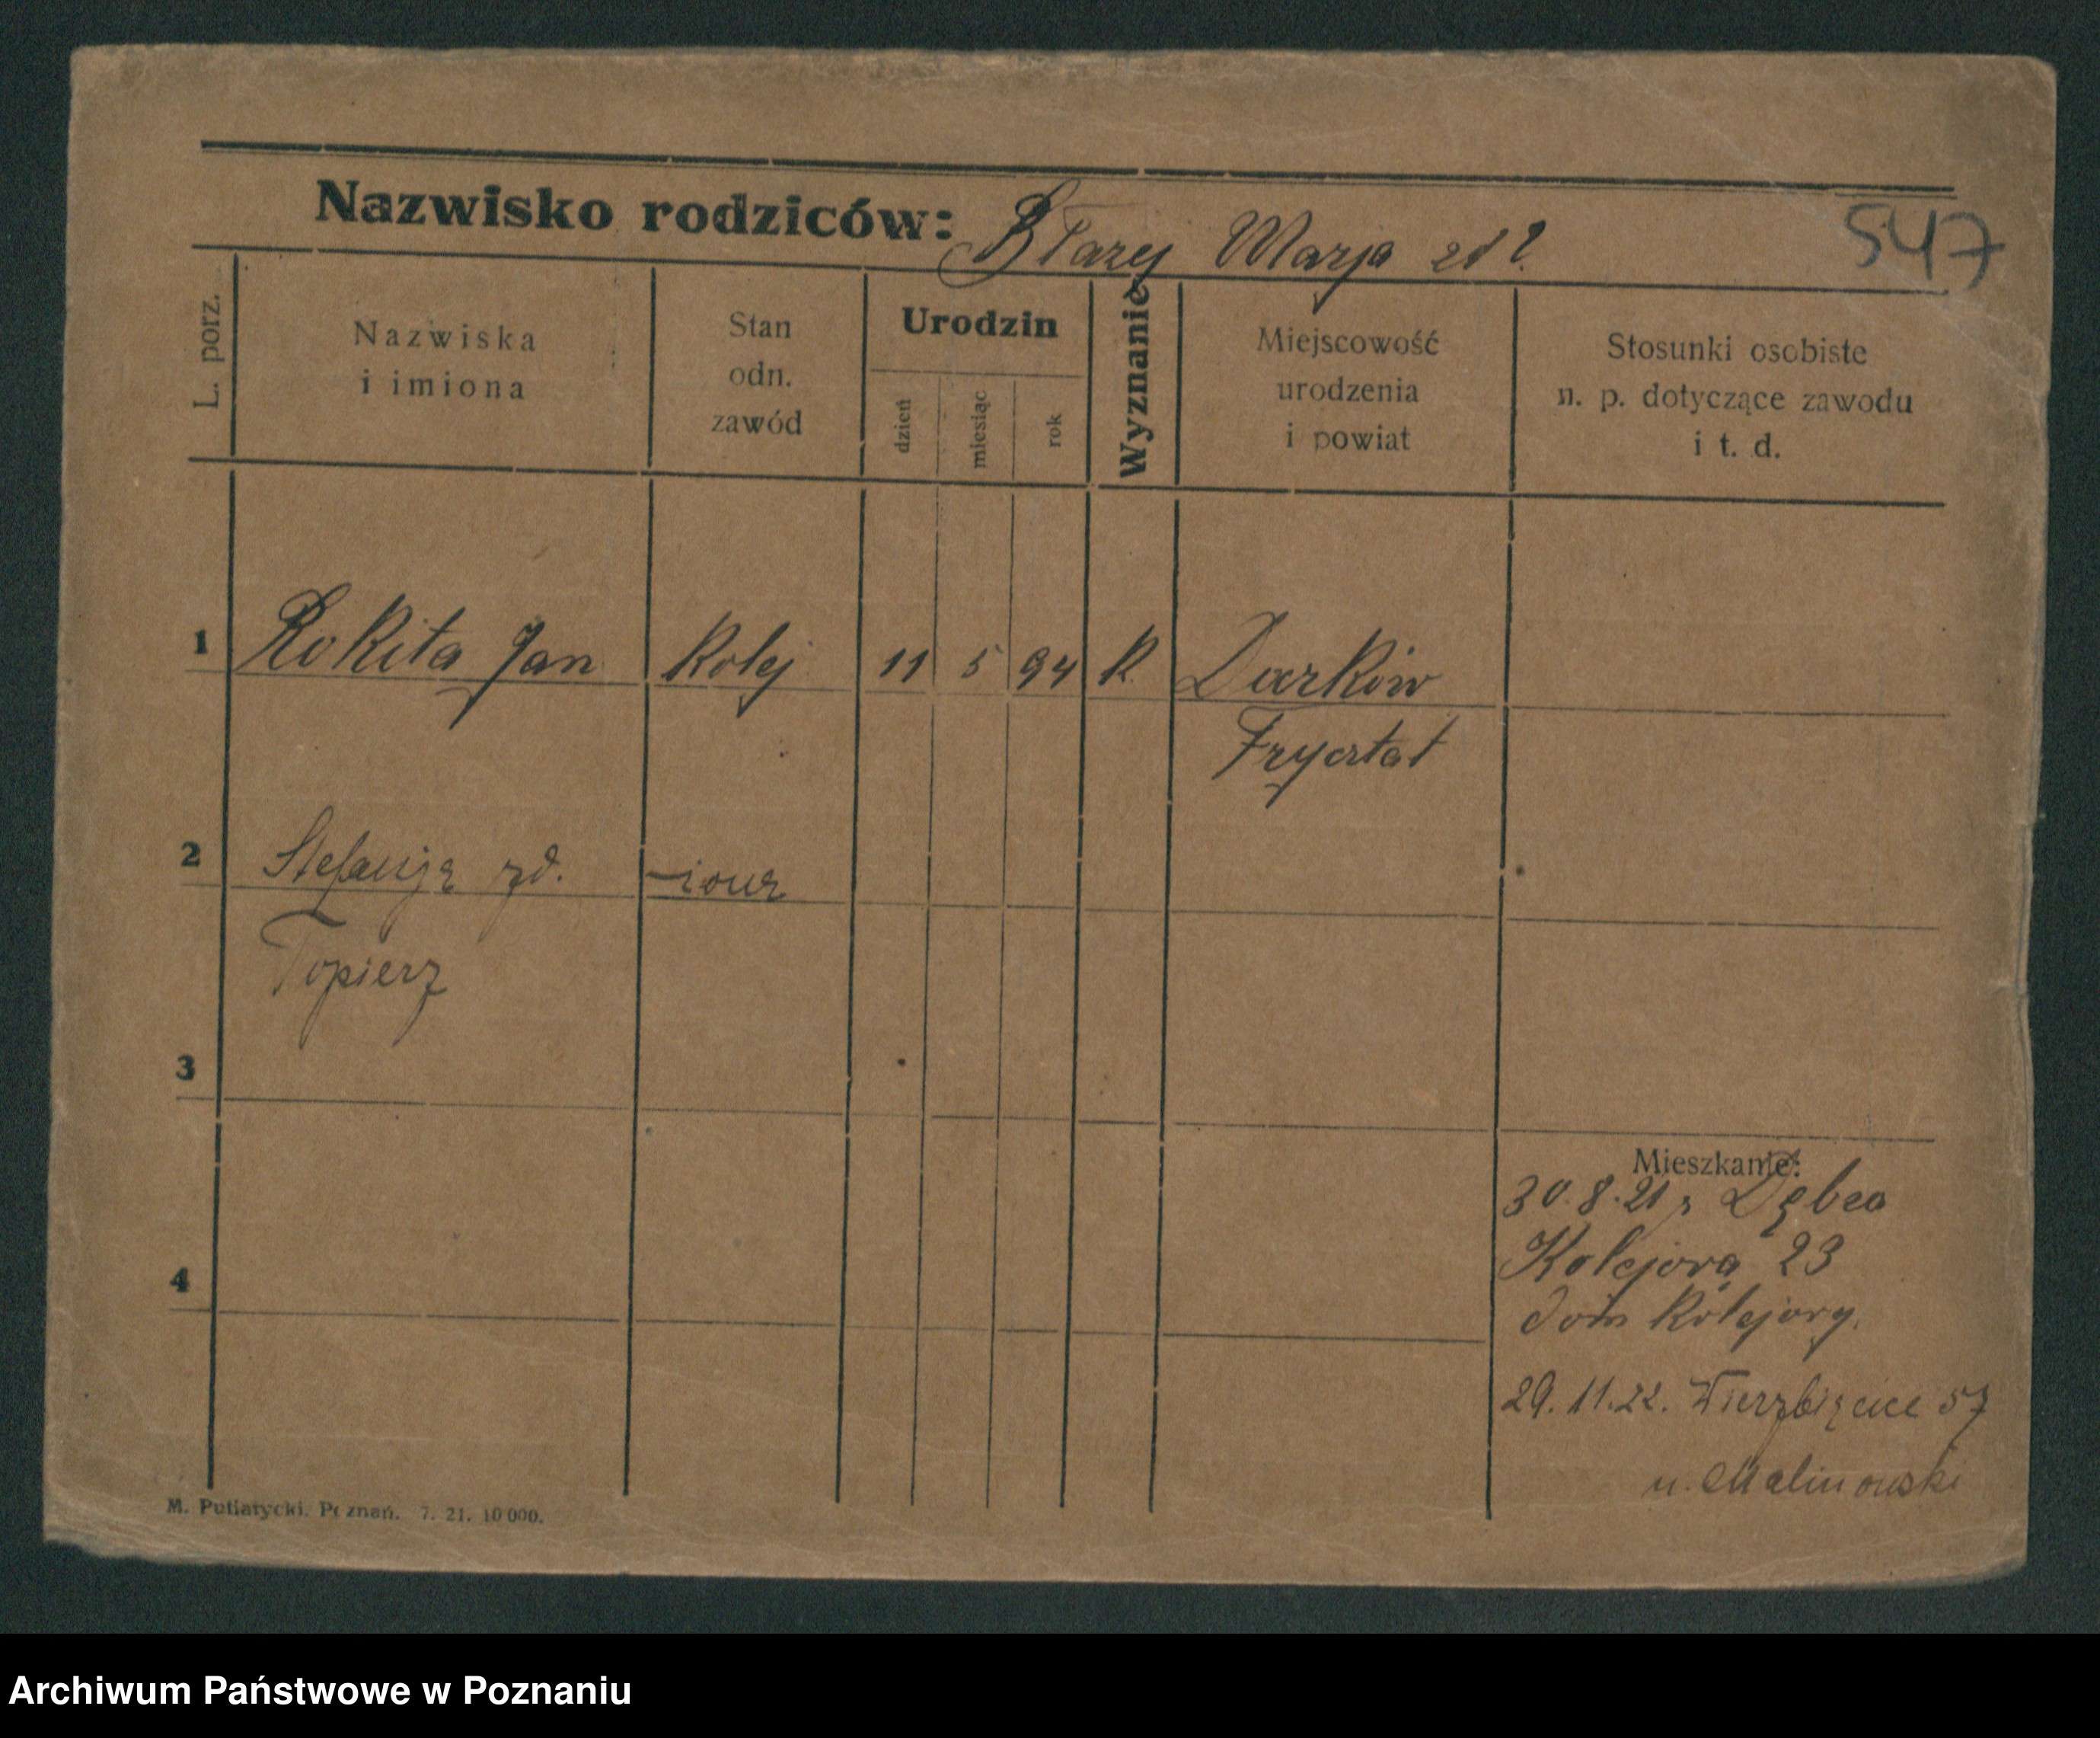 Nazwisko rodziców: Błazej Marja
547
L. porz.
Nazwiska
i imiona
Stan
odn.
zawód
Urodzin
dzień
miesiąc
rok
Wyznanie
Miejscowość
urodzenia
i powiat
Stosunki osobiste
n. p. dotyczące zawodu
i t. d.
1 Rokita Jan Kolej 11 5 94 k. Darków
Frysztat
2 Stefanja zd. -iowa
Topierz
3
4
Mieszkanie:
30.8.21 z Dębca
Kolejowa 23
dom Kolejowy.
29.11.22. Wierzbięcice 57
u. Malinowski
M. Putiatycki. Poznań. 7. 21. 10 000.
Archiwum Państwowe w Poznaniu